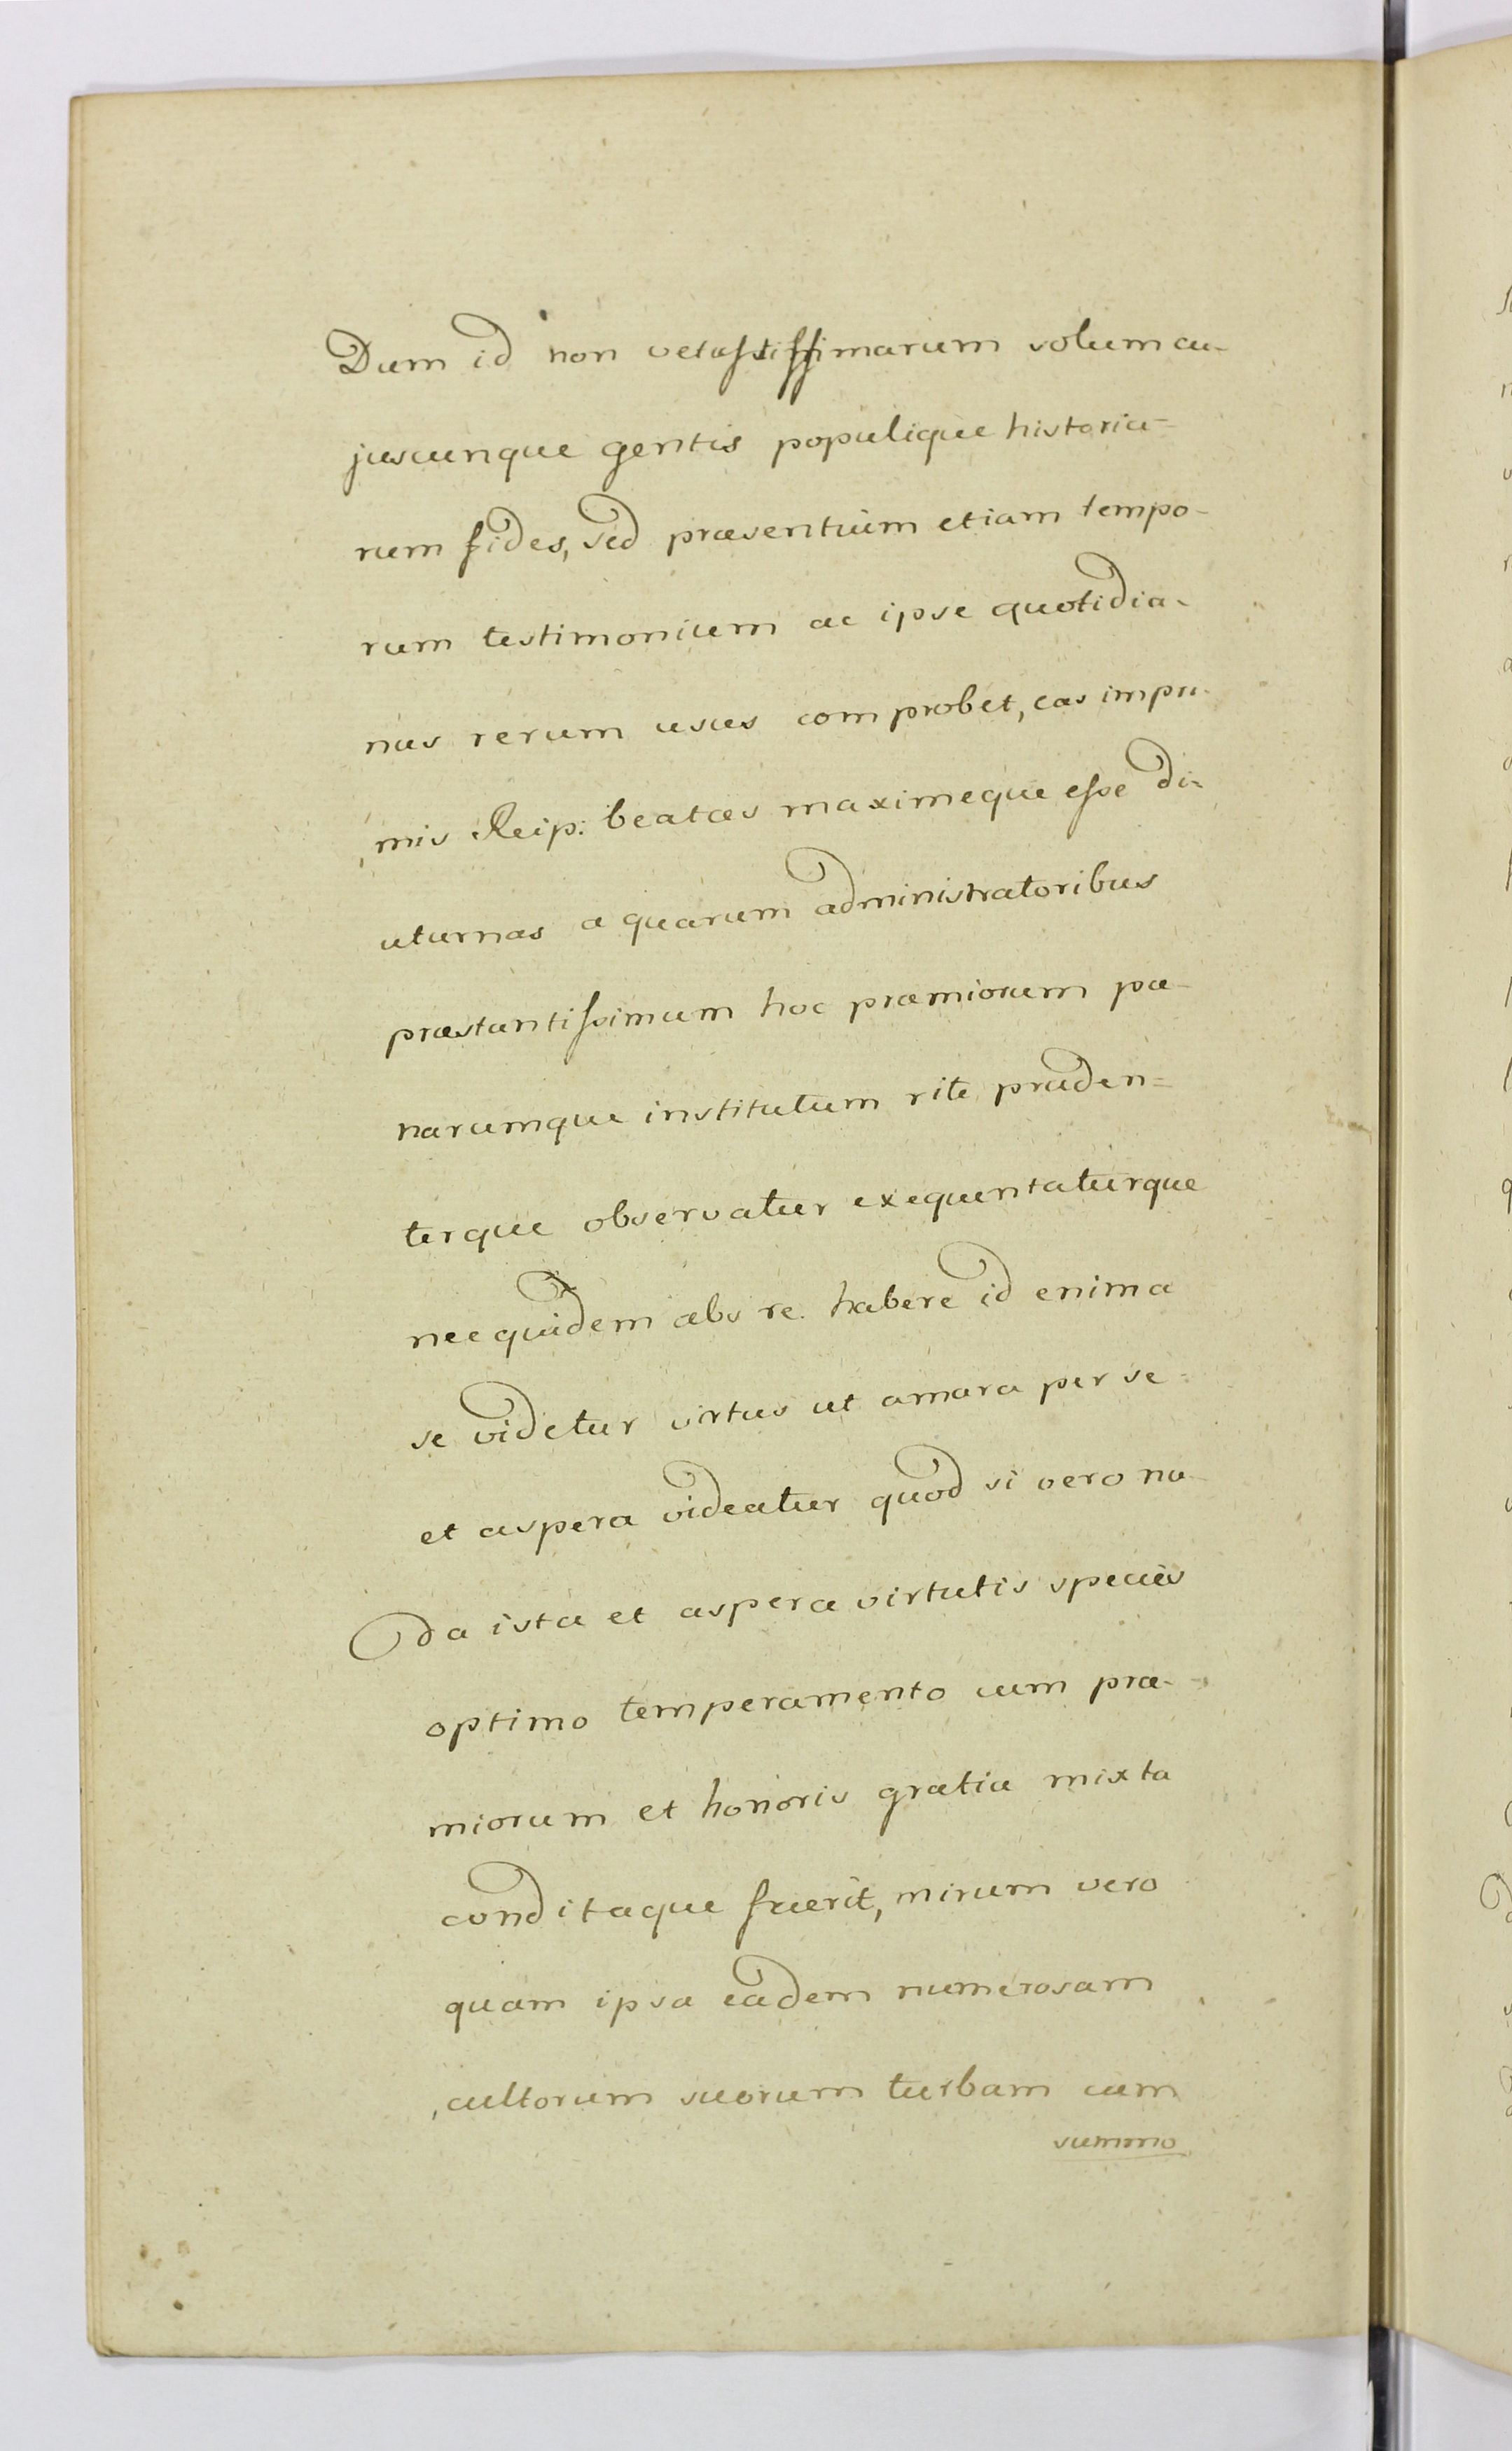 Dum id non vetustissimarum solum cu-
juscunque gentis populique historia=
rum fides, sed præsentium etiam tempo-
rum testimonium ac ipse quotidia-
nus rerum usus comprobet, eas impri-
mis Reip: beatas maximeque esse di-
uturnas a quarum administratoribus
præstantissimum hoc præmiorum pæ-
narumque institutum rite pruden=
terque observatur exequentaturque
nec quidem abs re. habere id enim a
se videtur virtus ut amara per se
et aspera videatur quod si vero nu-
da ista et aspera virtutis species
optimo temperamento cum præ-
miorum et honoris gratia mixta
conditaque fuerit, mirum vero
quam ipsa eadem numerosam
cultorum suorum turbam cum
summo